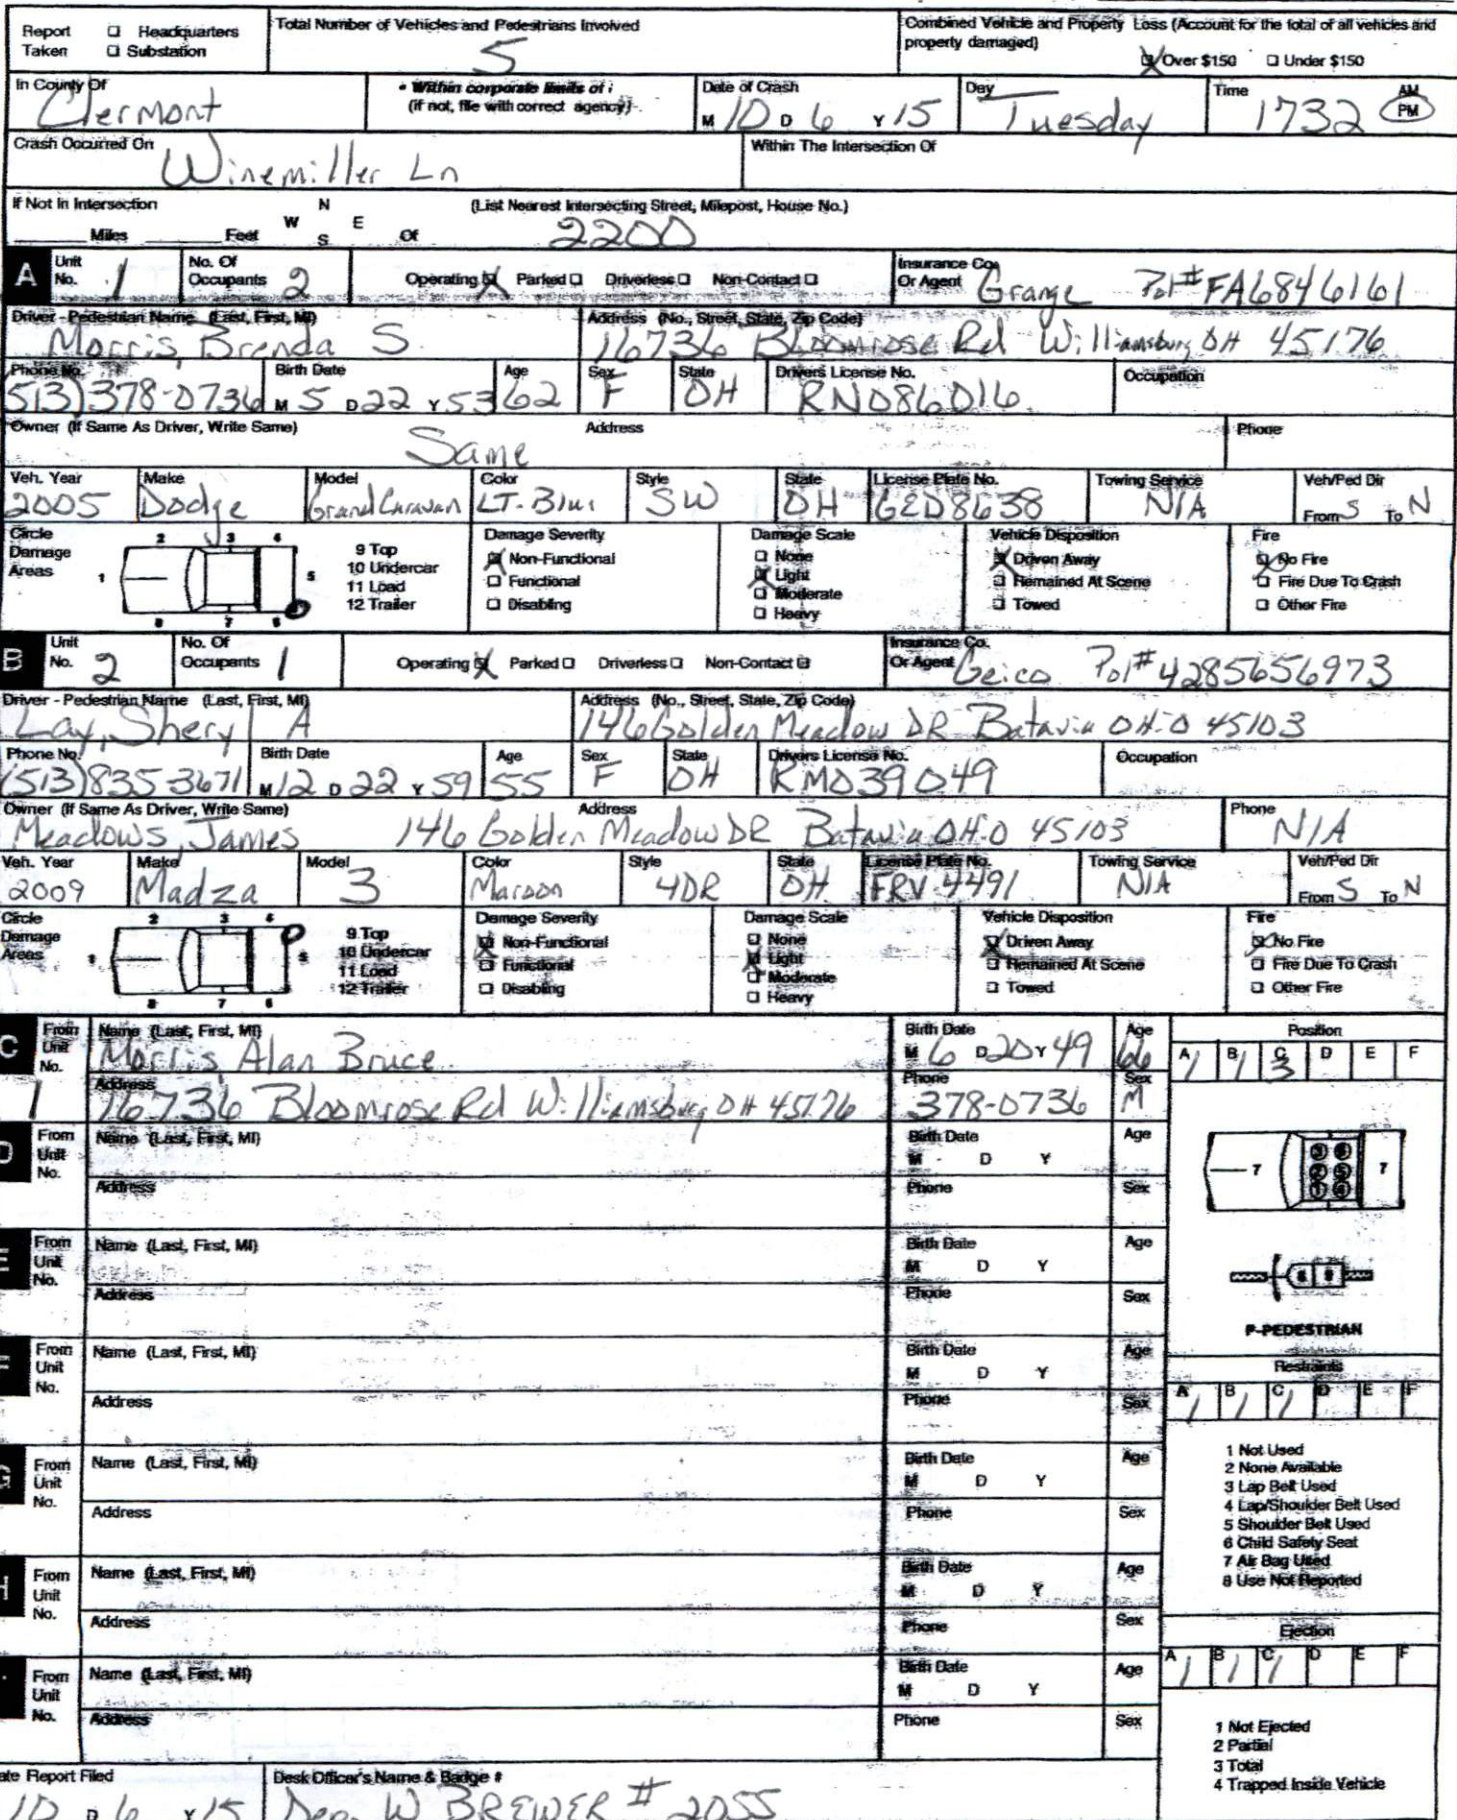 Report Taken ☐ Headquarters ☐ Substation
Total Number of Vehicles and Pedestrians Involved 5
Combined Vehicle and Property Loss (Account for the total of all vehicles and property damaged)
☒ Over $150 ☐ Under $150
In County Of Clermont
• Within corporate limits of :
(if not, file with correct agency)
Date of Crash M 10 D 6 Y 15
Day Tuesday
Time 1732 AM PM
Crash Occurred On Winemiller Ln
Within The Intersection Of
If Not In Intersection
Miles Feet N W E S Of
(List Nearest Intersecting Street, Milepost, House No.) 2200
A Unit No. 1 No. Of Occupants 2 Operating ☒ Parked ☐ Driverless ☐ Non-Contact ☐ Insurance Co. Or Agent Grange Pol# FA6846161
Driver - Pedestrian Name (Last, First, MI) Morris, Brenda S.
Address (No., Street, State, Zip Code) 16736 Bloomrose Rd Williamsburg OH 45176
Phone No. (513)378-0736 Birth Date M 5 D 22 Y 53 Age 62 Sex F State OH Drivers License No. RN086016 Occupation
Owner (If Same As Driver, Write Same) Same Address Phone
Veh. Year 2005 Make Dodge Model Grand Caravan Color LT. Blue Style SW State OH License Plate No. GED8638 Towing Service N/A Veh/Ped Dir From S To N
Circle Damage Areas
1 2 3 4 5 6 7 8
9 Top
10 Undercar
11 Load
12 Trailer
Damage Severity
☒ Non-Functional
☐ Functional
☐ Disabling
Damage Scale
☐ None
☒ Light
☐ Moderate
☐ Heavy
Vehicle Disposition
☒ Driven Away
☐ Remained At Scene
☐ Towed
Fire
☒ No Fire
☐ Fire Due To Crash
☐ Other Fire
B Unit No. 2 No. Of Occupants 1 Operating ☒ Parked ☐ Driverless ☐ Non-Contact ☐ Insurance Co. Or Agent Geico Pol# 4285656973
Driver - Pedestrian Name (Last, First, MI) Lay, Sheryl A
Address (No., Street, State, Zip Code) 146 Golden Meadow DR Batavia OH-O 45103
Phone No. (513)835 3671 Birth Date M 12 D 22 Y 59 Age 55 Sex F State OH Drivers License No. RM039049 Occupation
Owner (If Same As Driver, Write Same) Meadows, James Address 146 Golden Meadow DR Batavia OH-O 45103 Phone N/A
Veh. Year 2009 Make Madza Model 3 Color Maroon Style 4DR State OH License Plate No. FRV 4491 Towing Service N/A Veh/Ped Dir From S To N
Circle Damage Areas
1 2 3 4 5 6 7 8
9 Top
10 Undercar
11 Load
12 Trailer
Damage Severity
☒ Non-Functional
☐ Functional
☐ Disabling
Damage Scale
☐ None
☒ Light
☐ Moderate
☐ Heavy
Vehicle Disposition
☒ Driven Away
☐ Remained At Scene
☐ Towed
Fire
☒ No Fire
☐ Fire Due To Crash
☐ Other Fire
C From Unit No. 1 Name (Last, First, MI) Morris, Alan Bruce Birth Date M 6 D 20 Y 49 Age 66
Address 16736 Bloomrose Rd Williamsburg OH 45176 Phone 378-0736 Sex M
Position
A 1 B 1 C 3 D E F
D From Unit No. Name (Last, First, MI) Birth Date M D Y Age
Address Phone Sex
7 3 6 2 5 1 4 7
E From Unit No. Name (Last, First, MI) Birth Date M D Y Age
Address Phone Sex
8 9
P-PEDESTRIAN
F From Unit No. Name (Last, First, MI) Birth Date M D Y Age
Address Phone Sex
Restraints
A 1 B 1 C 1 D E F
G From Unit No. Name (Last, First, MI) Birth Date M D Y Age
Address Phone Sex
1 Not Used
2 None Available
3 Lap Belt Used
4 Lap/Shoulder Belt Used
5 Shoulder Belt Used
6 Child Safety Seat
7 Air Bag Used
8 Use Not Reported
H From Unit No. Name (Last, First, MI) Birth Date M D Y Age
Address Phone Sex
Ejection
A 1 B 1 C 1 D E F
From Unit No. Name (Last, First, MI) Birth Date M D Y Age
Address Phone Sex
1 Not Ejected
2 Partial
3 Total
4 Trapped Inside Vehicle
ate Report Filed 10 D 6 Y 15
Desk Officer's Name & Badge # Dep. W BREWER # 2055